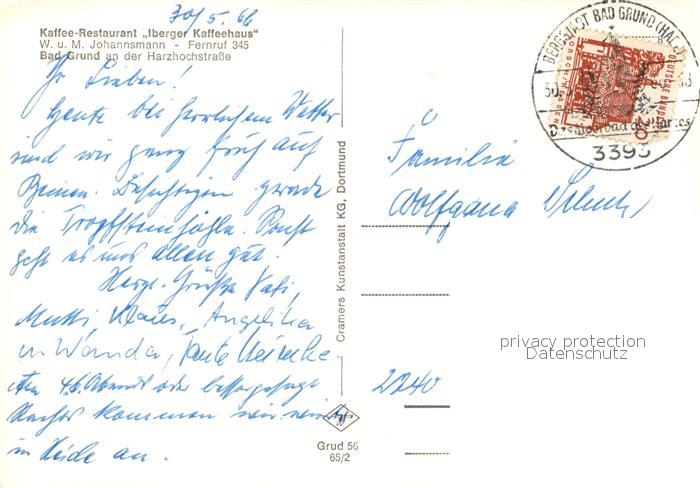 30/5. 66
Kaffee-Restaurant „Iberger Kaffeehaus"
W. u. M. Johannsmann - Fernruf 345
Bad Grund an der Harzhochstraße
Ihr Lieben!
Heute bei herrlichem Wetter
sind wir ganz früh auf
Beinen. Besichtigen gerade
die Tropfsteinhöhle. Sonst
geht es uns allen gut.
Herzl. Grüße Vati,
Mutti, Klaus, Angelika
u Wanda, Tante
Am 4.6. Abends oder besser gesagt
Nachts kommen wir
in Heide an.
Cramers Kunstanstalt KG, Dortmund
Grud 56
65/2
BERGSTADT BAD GRUND (HARZ)
30.
DEUTSCHE BUNDESPOST
3393
Familie
Wolfgang
2240
privacy protection
Datenschutz